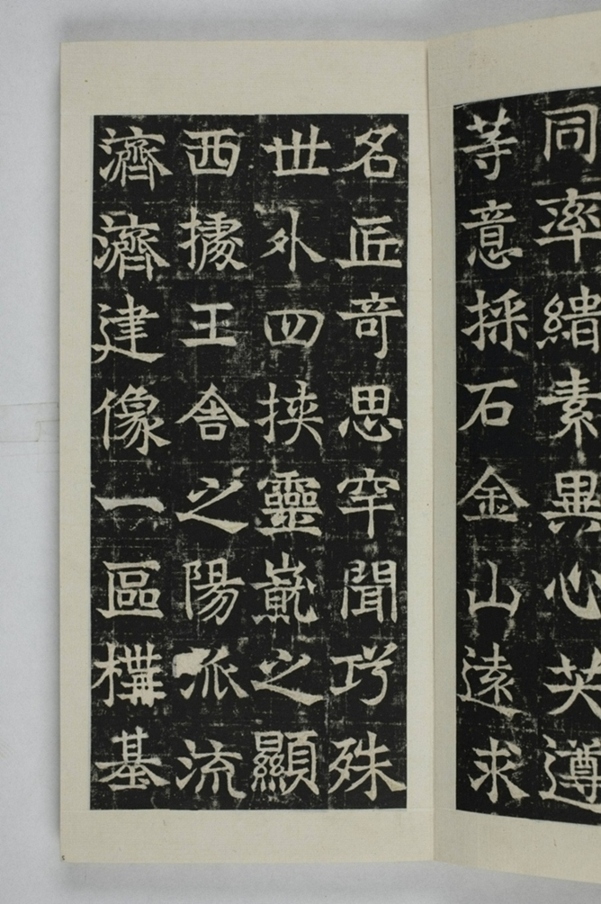 同率緇素異心共遵
等意採石金山遠求
名匠奇思罕聞巧殊
世外四挾靈巍之顯
西據王舍之陽派流
濟濟建像一區構基